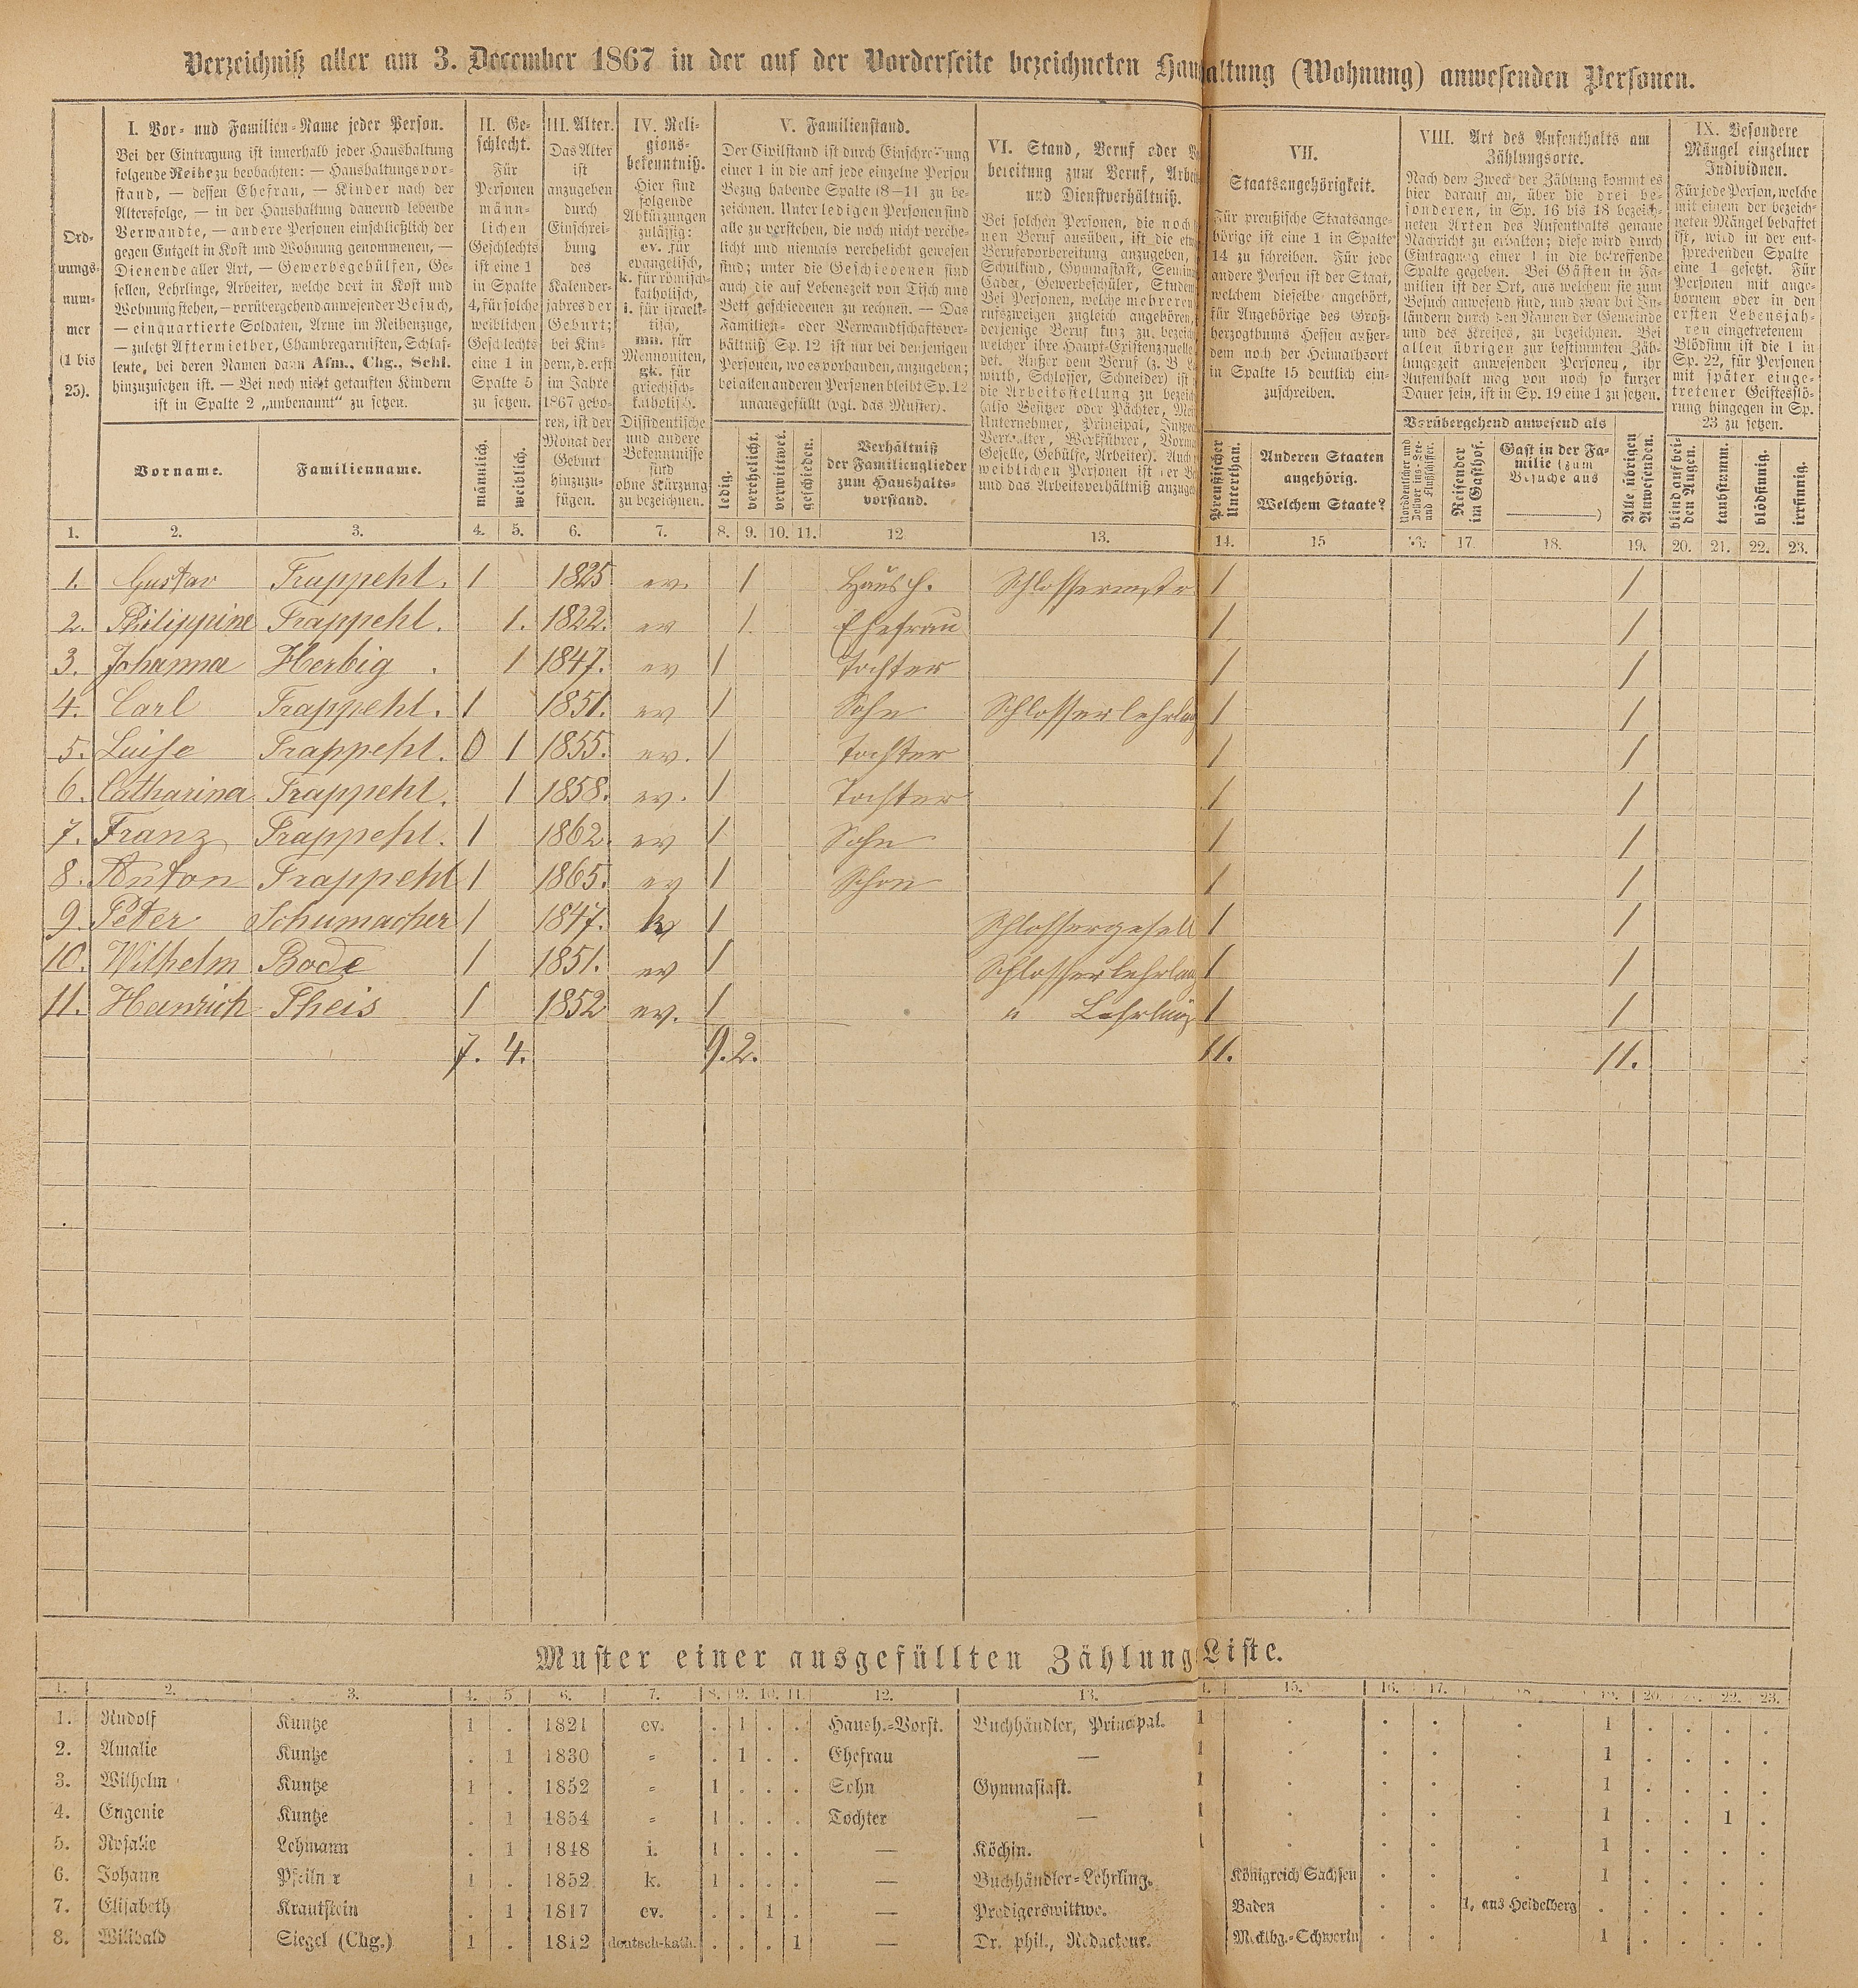 Verzeichniß aller am 3. December 1867 in der auf der Vorderseite bezeichneten Haushaltung (Wohnung) anwesenden Personen.
Ord-
nungs-
num-
mer
(1 bis
25).
I. Vor- und Familien-Name jeder Person.
Bei der Eintragung ist innerhalb jeder Haushaltung
folgende Reihe zu beobachten: — Haushaltungsvor-
stand, — dessen Ehefrau, — Kinder nach der
Altersfolge, — in der Haushaltung dauernd lebende
Verwandte, — andere Personen einschließlich der
gegen Entgelt in Kost und Wohnung genommenen, —
Dienende aller Art, — Gewerbsgehülfen, Ge-
sellen, Lehrlinge, Arbeiter, welche dort in Kost und
Wohnung stehen, — vorübergehend anwesender Besuch,
— einquartierte Soldaten, Arme im Reihenzuge,
— zuletzt Aftermiether, Chambregarnisten, Schlaf-
leute, bei deren Namen dann Afm., Chg., Schl.
hinzuzusetzen ist. — Bei noch nicht getauften Kindern
ist in Spalte 2 „unbenannt“ zu setzen.
Vorname.
Familienname.
II. Ge-
schlecht.
Für
Personen
männ-
lichen
Geschlechts
ist eine 1
in Spalte
4, für solche
weiblichen
Geschlechts
eine 1 in
Spalte 5
zu setzen.
männlich.
weiblich.
III. Alter.
Das Alter
ist
anzugeben
durch
Einschrei-
bung
des
Kalender-
jahres der
Geburt;
bei Kin-
dern, d. erst
im Jahre
1867 gebo-
ren, ist der
Monat der
Geburt
hinzuzu-
fügen.
IV. Reli-
gions-
bekenntniß.
Hier sind
folgende
Abkürzungen
zulässig:
ev. für
evangelisch,
k. für römisch-
katholisch,
i. für israeli-
tisch,
mn. für
Mennoniten,
gk. für
griechisch-
katholisch.
Dissidentische
und andere
Bekenntnisse
sind
ohne Kürzung
zu bezeichnen.
V. Familienstand.
Der Civilstand ist durch Einschreibung
einer 1 in die auf jede einzelne Person
Bezug habende Spalte (8—11) zu be-
zeichnen. Unter ledigen Personen sind
alle zu verstehen, die noch nicht vereh-
licht und niemals verehelicht gewesen
sind; unter die Geschiedenen sind
auch die auf Lebenszeit von Tisch und
Bett geschiedenen zu rechnen. — Das
Familien- oder Verwandtschaftsver-
hältniß Sp. 12 ist nur bei denjenigen
Personen, wo es vorhanden, anzugeben;
bei allen anderen Personen bleibt Sp. 12
unausgefüllt (vgl. das Muster).
ledig.
verehelicht.
verwittwet.
geschieden.
Verhältniß
der Familienglieder
zum Haushalts-
vorstand.
VI. Stand, Beruf oder
bereitung zum Beruf,
und Dienstverhältniß.
Bei solchen Personen, die noch
nen Beruf ausüben, ist die
Berufsvorbereitung anzugeben,
Schulkind, Gymnasiast,
Cadet, Gewerbeschüler,
Bei Personen, welche mehreren
rufszweigen zugleich angehören,
derjenige Beruf kurz zu
welcher ihre Haupt-Existenzquelle
det. Außer dem Beruf (z. B.
wirth, Schlosser, Schneider) ist
die Arbeitsstellung zu
(also Besitzer oder Pächter,
Unternehmer, Principal,
Verwalter, Werkführer,
Geselle, Gehülfe, Arbeiter). Auch
weiblichen Personen ist der
und das Arbeitsverhältniß
VII.
Staatsangehörigkeit.
Für preußische Staatsange-
hörige ist eine 1 in Spalte
14 zu schreiben. Für jede
andere Person ist der Staat,
welchem dieselbe angehört,
für Angehörige des Groß-
herzogthums Hessen außer-
dem noch der Heimathsort
in Spalte 15 deutlich ein-
zuschreiben.
Preußischer
Unterthan.
Anderen Staaten
angehörig.
Welchem Staate?
VIII. Art des Aufenthalts am
Zählungsorte.
Nach dem Zweck der Zählung kommt es
hier darauf an, über die drei be-
sonderen, in Sp. 16 bis 18 bezeich-
neten Arten des Aufenthalts genaue
Nachricht zu erhalten; diese wird durch
Eintragung einer 1 in die betreffende
Spalte gegeben. Bei Gästen in Fa-
milien ist der Ort, aus welchem sie zum
Besuch anwesend sind, und zwar bei In-
ländern durch den Namen der Gemeinde
und des Kreises, zu bezeichnen. Bei
allen übrigen zur bestimmten Zäh-
lungszeit anwesenden Personen, ihr
Aufenthalt mag von noch so kurzer
Dauer sein, ist in Sp. 19 eine 1 zu setzen.
Vorübergehend anwesend als
Norddeutscher und
Zollvereins-See-
und Flußschiffer.
Reisender
im Gasthof.
Gast in der Fa-
milie (zum
Besuche aus
)
Alle übrigen
Anwesenden.
IX. Besondere
Mängel einzelner
Individuen.
Für jede Person, welche
mit einem der bezeich-
neten Mängel behaftet
ist, wird in der ent-
sprechenden Spalte
eine 1 gesetzt. Für
Personen mit ange-
bornem oder in den
ersten Lebensjah-
ren eingetretenem
Blödsinn ist die 1 in
Sp. 22, für Personen
mit später einge-
tretener Geistesstö-
rung hingegen in Sp.
23 zu setzen.
blind auf bei-
den Augen.
taubstumm.
blödsinnig.
irrsinnig.
1. 2. 3. 4. 5. 6. 7. 8. 9. 10. 11. 12 13. 14. 15 16. 17. 18. 19. 20. 21. 22. 23.
1. Gustav Trappehl. 1 1825 ev. 1 Haush. Schlossermstr 1 1
2. Philippine Trappehl. 1. 1822. ev 1. Ehefrau 1 1
3. Johanna Herbig . 1 1847. ev 1 Tochter 1 1
4. Carl Trappehl. 1 1851. ev 1 Sohn Schlosserlehrling 1 1
5. Luise Trappehl. 0 1 1855. ev. 1 Tochter 1 1
6. Catharina Trappehl. 1 1858. ev. 1 Tochter 1 1
7. Franz Trappehl. 1 1862. ev 1 Sohn 1 1
8. Anton Trappehl 1 1865. ev 1 Sohn 1 1
9. Peter Schumacher 1 1847. k 1 Schlossergesell 1 1
10. Wilhelm Bode 1 1851. ev 1 Schlosserlehrling 1 1
11. Heinrich Theis 1 1852 ev. 1 " Lehrling 1 1
7. 4. 9. 2. 11. 11.
Muster einer ausgefüllten Zählungs Liste.
1. 2. 3. 4. 5. 6. 7. 8. 9. 10. 11. 12. 13. 15. 16. 17. 18. 19. 20. 21. 22. 23.
1. Rudolf Kuntze 1 . 1821 ev. . 1 . . Haush.-Vorst. Buchhändler, Principal. 1 . . . . 1 . . . .
2. Amalie Kuntze . 1 1830 = . 1 . . Ehefrau — 1 . . . . 1 . . . .
3. Wilhelm Kuntze 1 . 1852 = 1 . . . Sohn Gymnasiast. 1 . . . . 1 . . . .
4. Eugenie Kuntze . 1 1854 = 1 . . . Tochter — 1 . . . . 1 . . 1 .
5. Rosalie Lehmann . 1 1848 i. 1 . . . — Köchin. 1 . . . . 1 . . . .
6. Johann Pfeilner 1 . 1852 k. 1 . . . — Buchhändler-Lehrling. Königreich Sachsen . . . 1 . . . .
7. Elisabeth Krautstein . 1 1817 ev. . . 1 . — Predigerswittwe. Baden . . 1, aus Heidelberg . . . . .
8. Willibald Siegel (Chg.) 1 . 1812 deutsch-kath. . . . 1 — Dr. phil., Redacteur. Mecklbg.-Schwerin . . . 1 . . . .